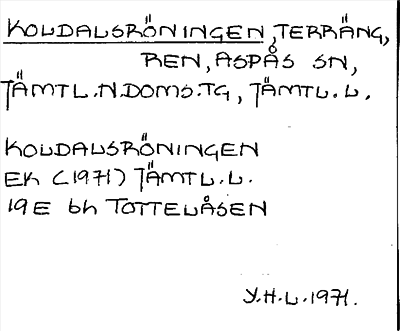 KOLDALSRÖNINGEN, TERRÄNG,
REN, ASPÅS SN,
JÄMTL.N.DOMS.TG, JÄMTL.L.
KOLDALSRÖNINGEN
EK (1971) JÄMTL.L.
19E 6h TOTTELÅSEN
Y.H.L.1971.